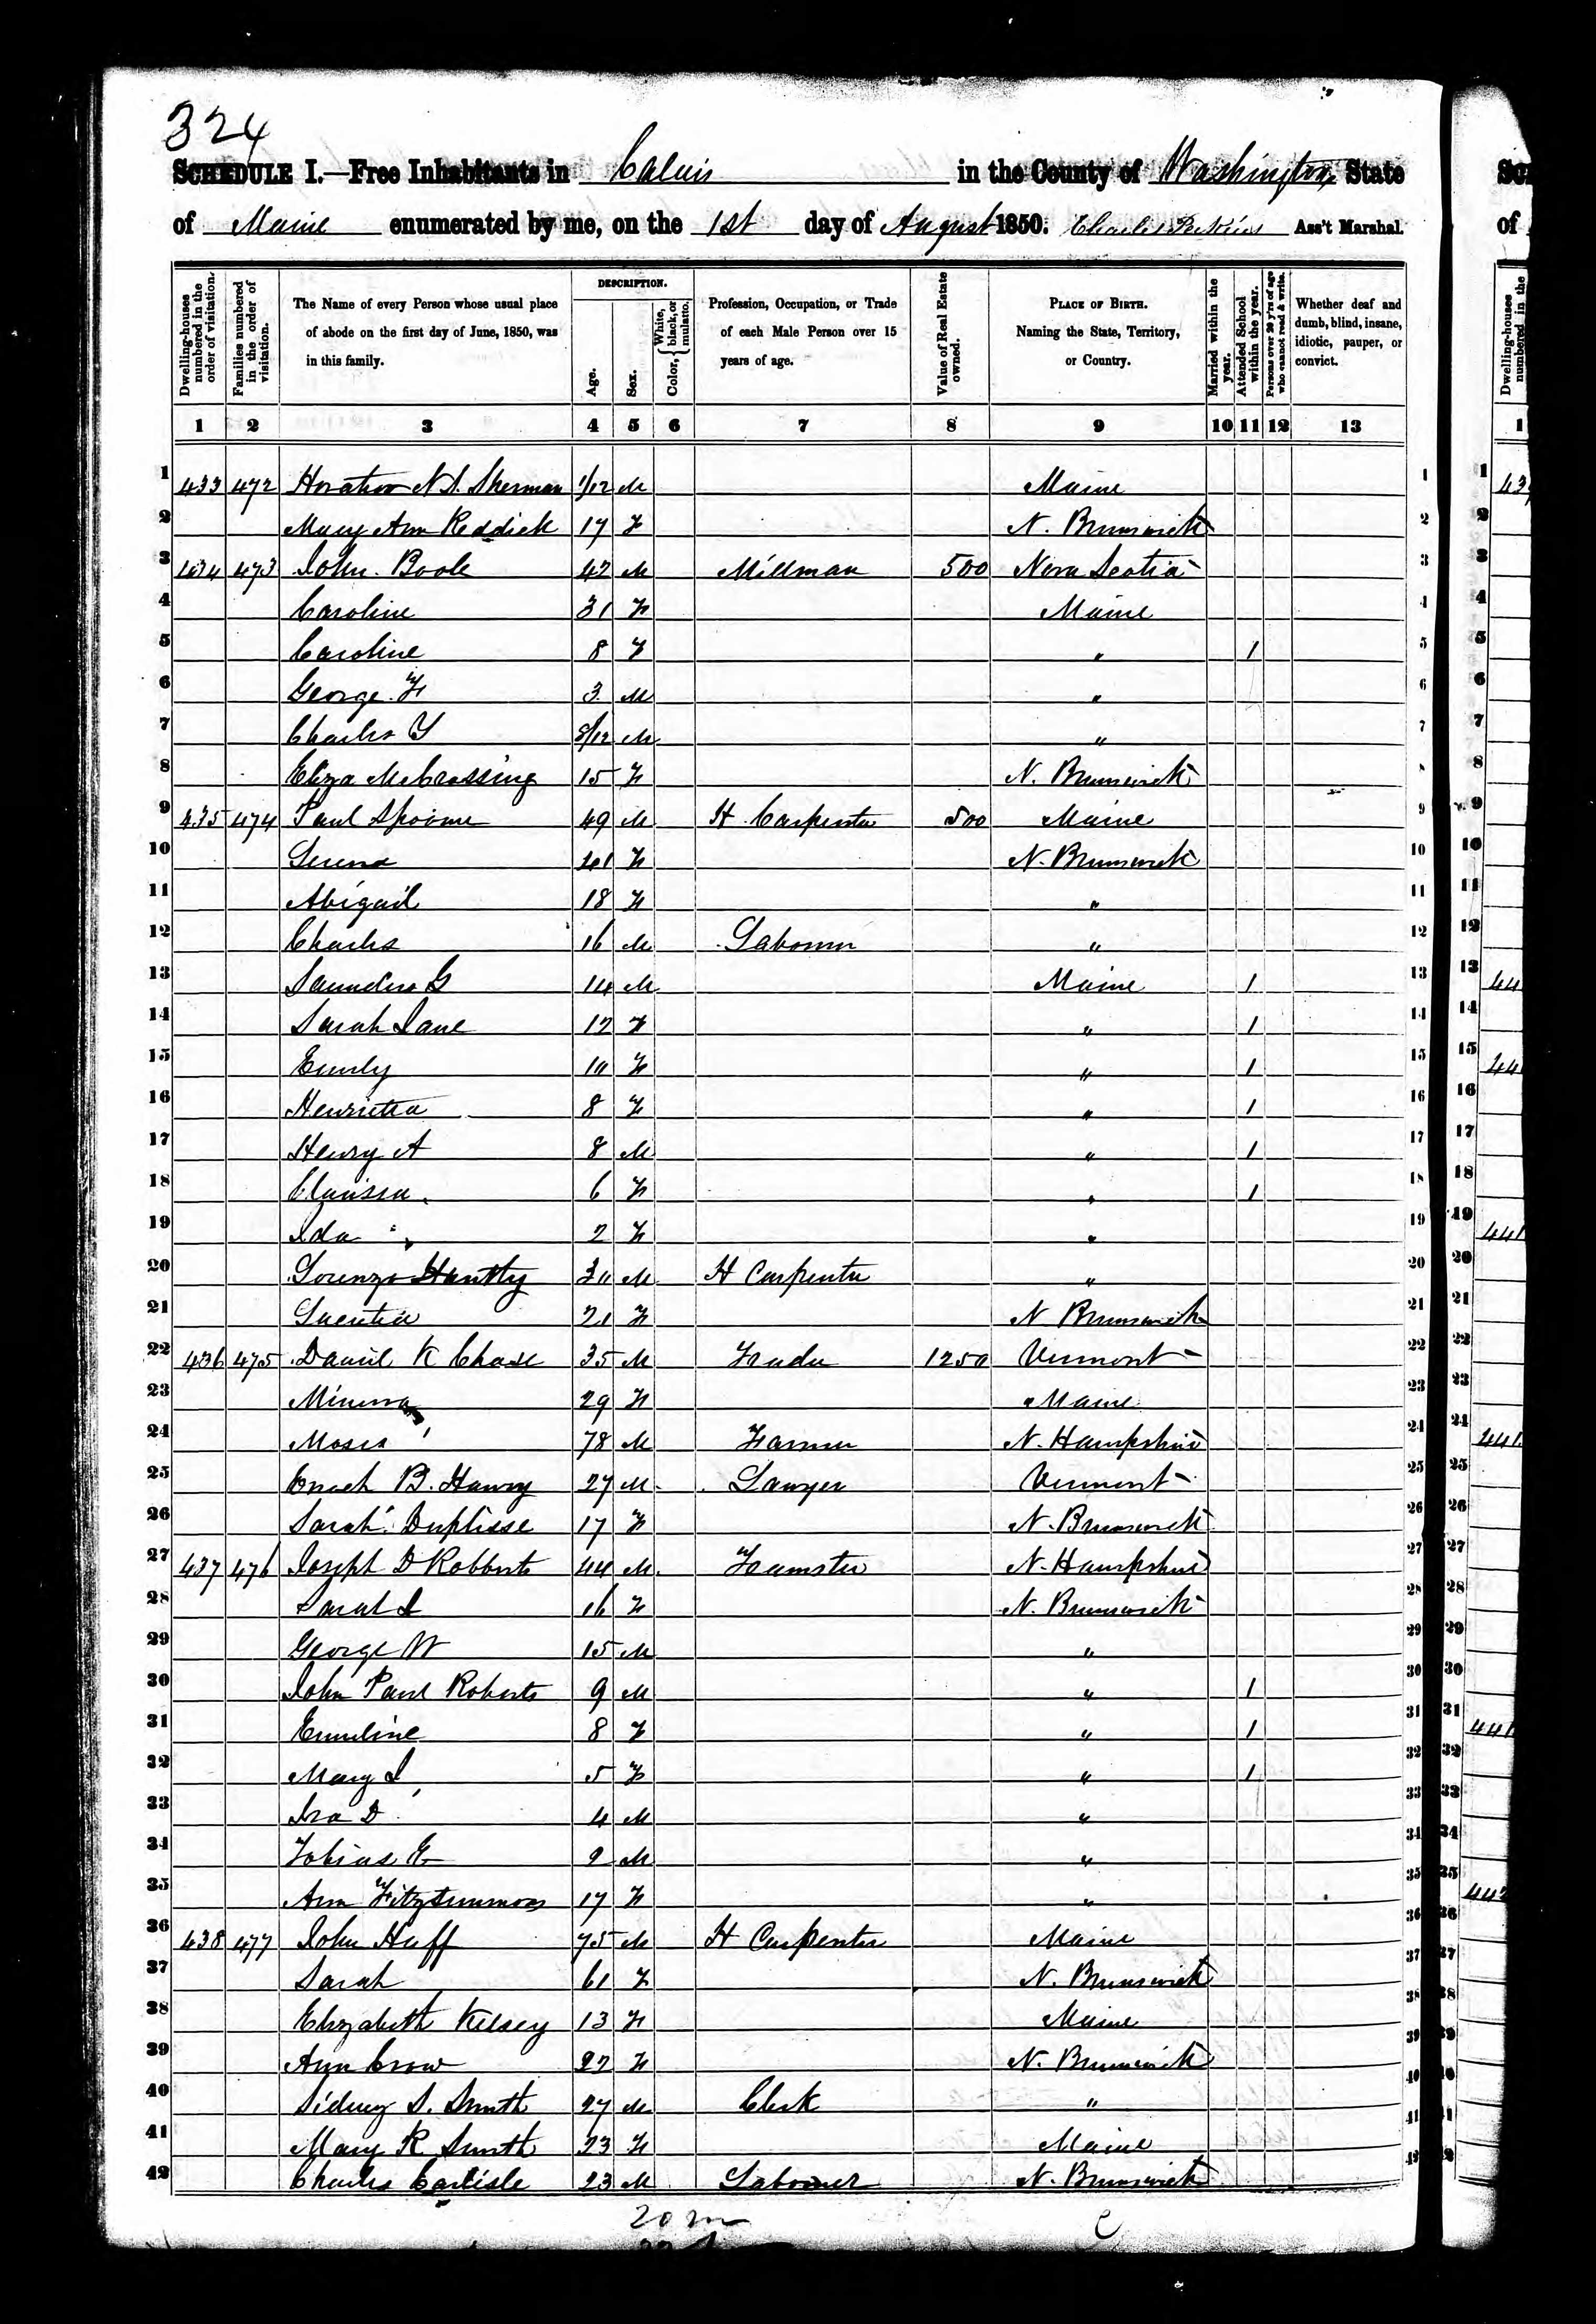 324
SCHEDULE I.—Free Inhabitants in Calais in the County of Washington State
of Maine enumerated by me, on the 1st day of August 1850. Charles Perkins Ass't Marshal.
Dwelling-houses numbered in the order of visitation.
Families numbered in the order of visitation.
The Name of every Person whose usual place of abode on the first day of June, 1850, was in this family.
DESCRIPTION.
Age.
Sex.
Color, { White, black, or mulatto.
Profession, Occupation, or Trade of each Male Person over 15 years of age.
Value of Real Estate owned.
PLACE OF BIRTH. Naming the State, Territory, or Country.
Married within the year.
Attended School within the year.
Persons over 20 y'rs of age who cannot read & write.
Whether deaf and dumb, blind, insane, idiotic, pauper, or convict.
1 2 3 4 5 6 7 8 9 10 11 12 13
1 433 472 Horatio N. S. Sherman 1/12 M Maine 1
2 Mary Ann Reddick 17 F N. Brunswick 2
3 434 473 John Boole 42 M Millman 500 Nova Scotia 3
4 Caroline 31 F Maine 4
5 Caroline 8 F " 1 5
6 George F 3 M " 6
7 Charles Y 8/12 M " 7
8 Eliza McCrossing 15 F N. Brunswick 8
9 435 474 Paul 49 M H Carpenter 500 Maine 9
10 41 F N. Brunswick 10
11 Abigail 18 F " 11
12 Charles 16 M Labourer " 12
13 Saunders G 14 M Maine 1 13
14 Sarah Jane 12 F " 1 14
15 Emily 10 F " 1 15
16 Henrietta 8 F " 1 16
17 Henry A 8 M " 1 17
18 Clarissa 6 F " 1 18
19 Ida 2 F " 19
20 Lorenzo Huntly 30 M H Carpenter " 20
21 21 F N Brunswick 21
22 436 475 Daniel K Chase 35 M Trader 1250 Vermont 22
23 Minerva 29 F Maine 23
24 Moses 78 M Farmer N. Hampshire 24
25 Enoch B. Harvey 27 M Lawyer Vermont 25
26 Sarah Duplisse 17 F N. Brunswick 26
27 437 476 Joseph D Robberts 44 M Teamster N. Hampshire 27
28 Sarah J 16 F N. Brunswick 28
29 George W 15 M " 29
30 John Paul Roberts 9 M " 1 30
31 Emeline 8 F " 1 31
32 Mary J 5 F " 1 32
33 Ira D 4 M " 33
34 Tobias E 2 M " 34
35 Ann Fitzsimmons 17 F " 35
36 438 477 John Huff 75 M H Carpenter Maine 36
37 Sarah 61 F N. Brunswick 37
38 Elizabeth Kelsey 13 F Maine 38
39 Ann Crow 22 F N. Brunswick 39
40 Sidney S. Smith 27 M Clerk " 40
41 Mary R Smith 23 F Maine 41
42 Charles Carlisle 23 M Labourer N. Brunswick 42
20 m